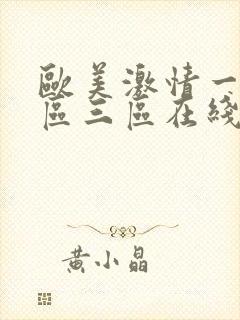 歐美激情一
區三區在綫
黃小晶